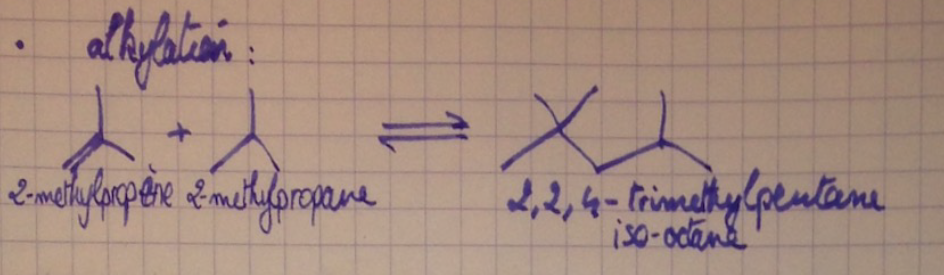 • alkylation :
+
2-méthylpropène 2-méthylpropane
2,2,4-triméthylpentane
iso-octane